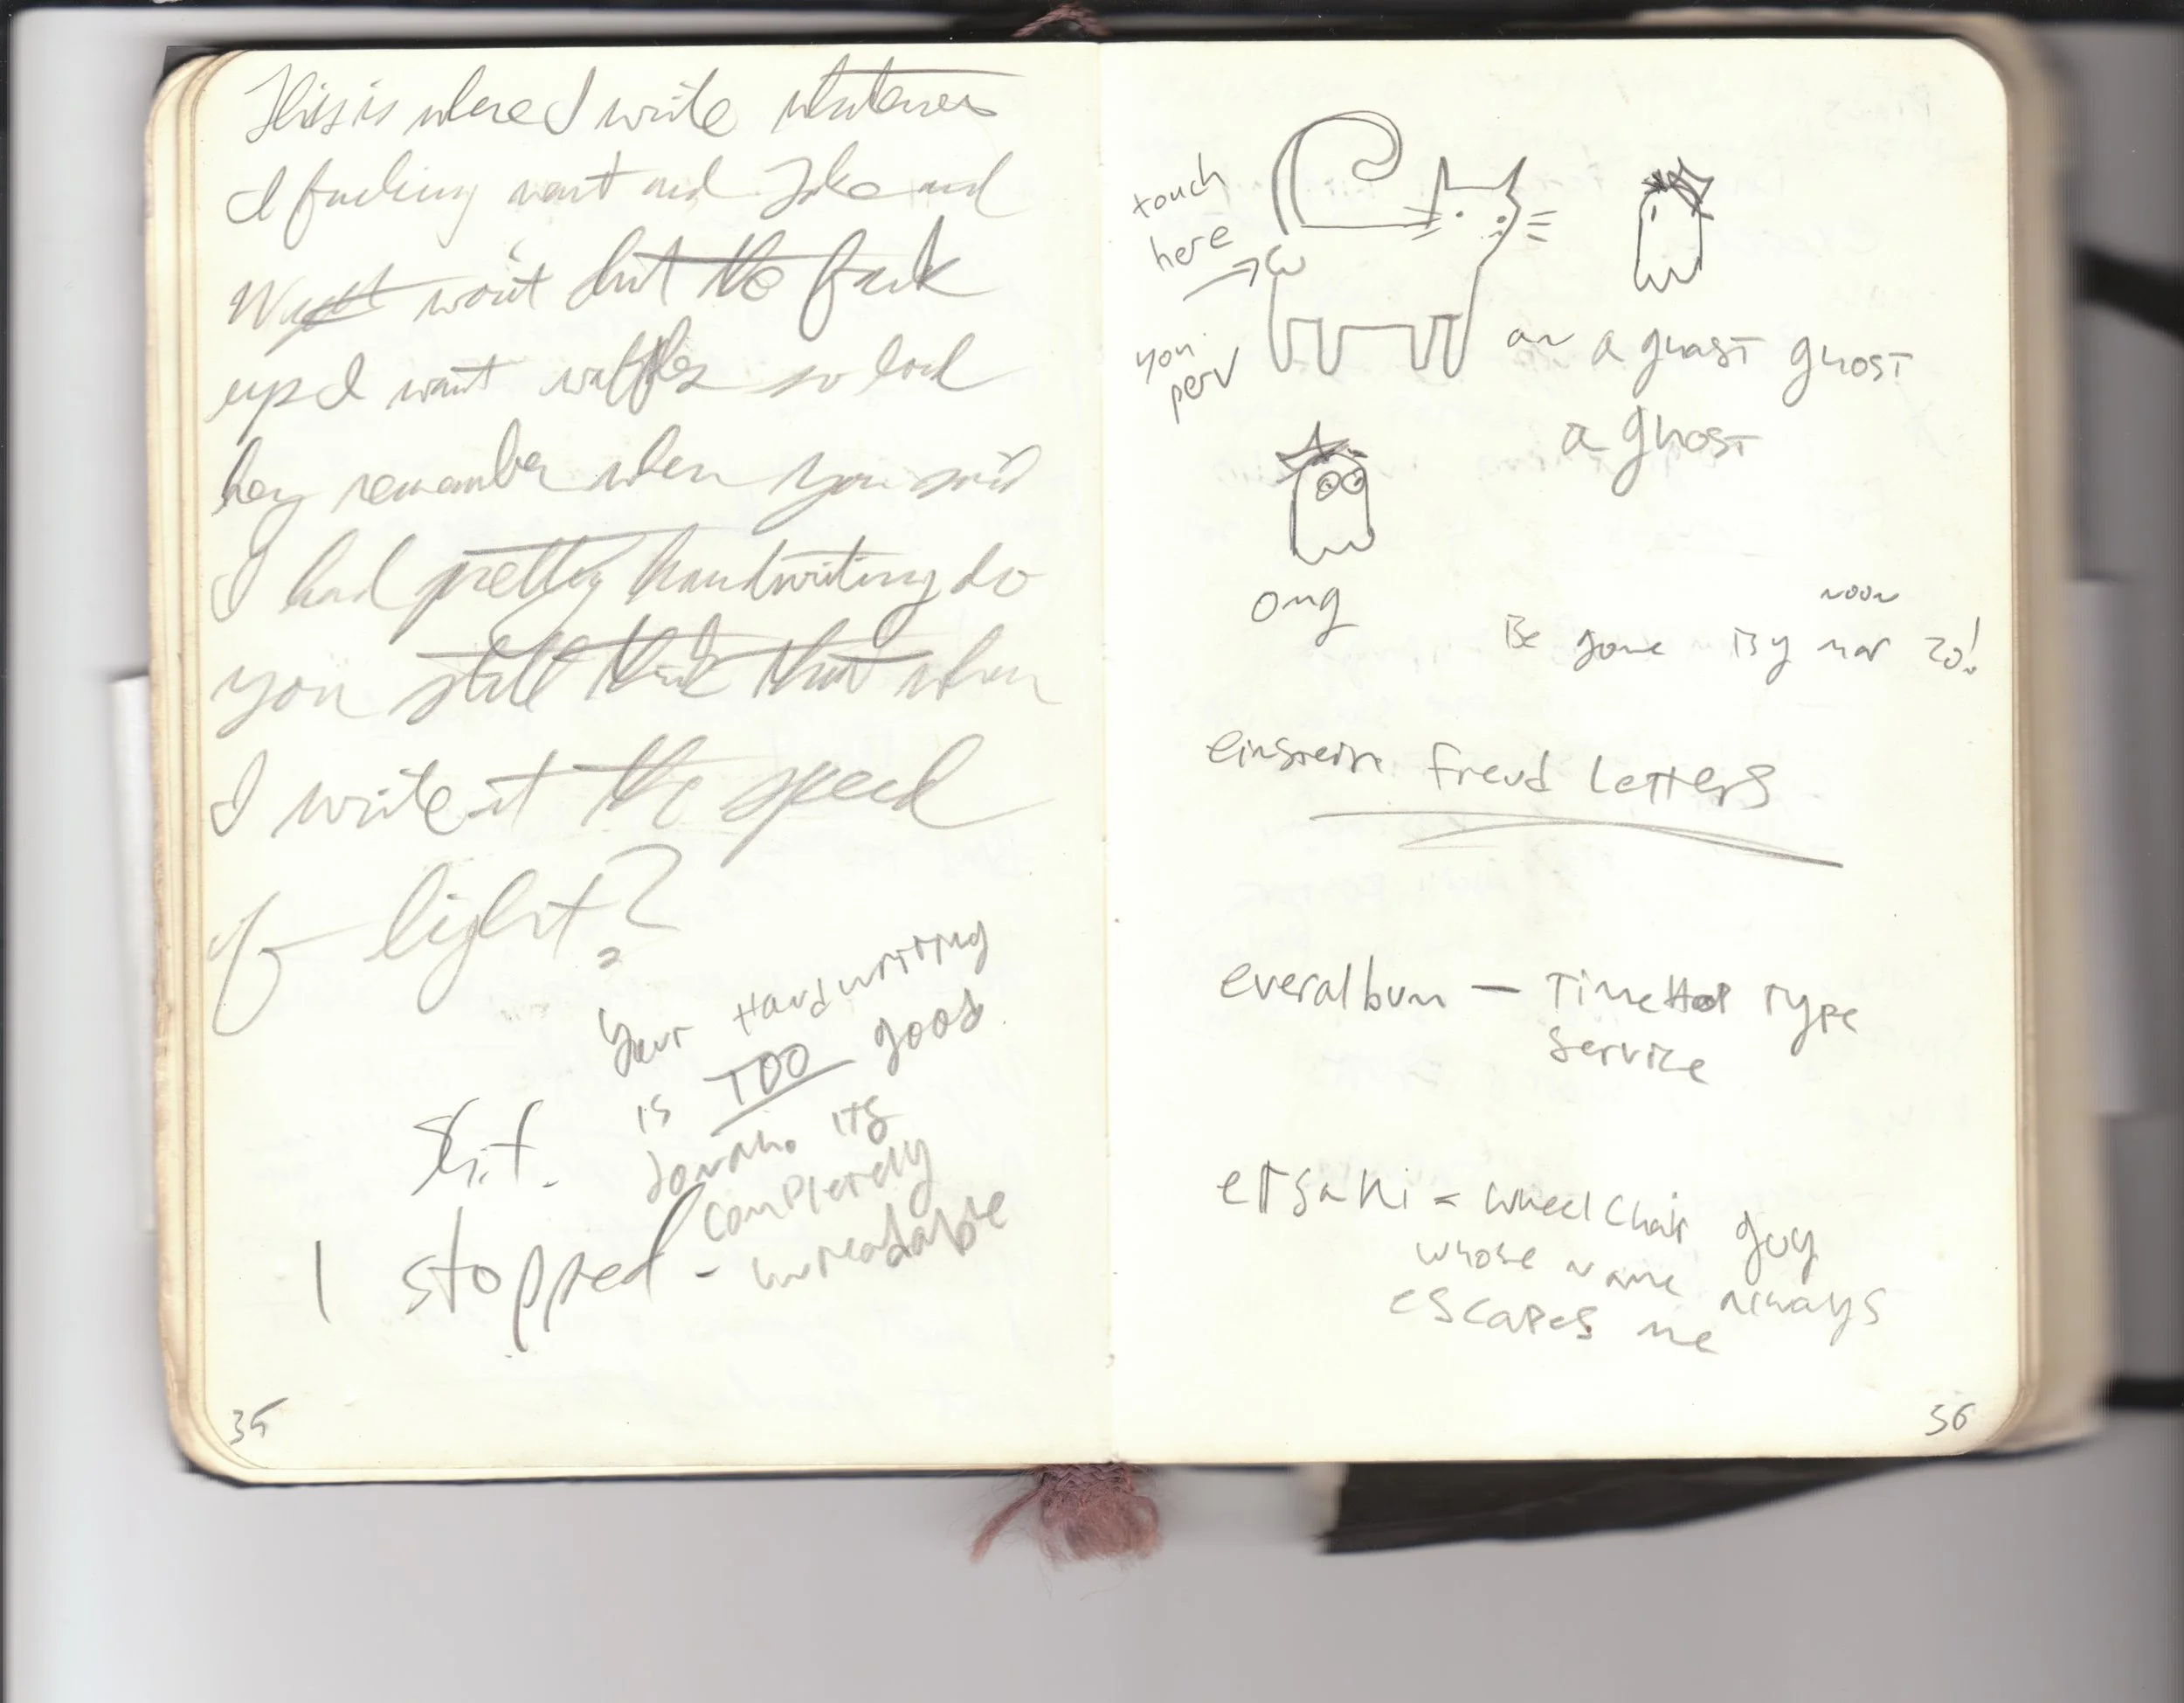 This is where I write whatever
I fucking want and Jake and
Wyatt won't shut the fuck
up I want waffles so bad
hey remember when you said
I had pretty handwriting do
you still think that when
I write at the speed
of light?
?
Your Handwriting
is TOO good
Jonah. its
completely
unreadable
Shit.
I stopped -
35
touch
here
you
perv
an a ghast ghost
a ghost
omg
noon
Be gone By mar 20!
einstein freud letters
everalbum — TimeHop Type
Service
etsaki = wheelchair guy
whose name always
escapes me
36